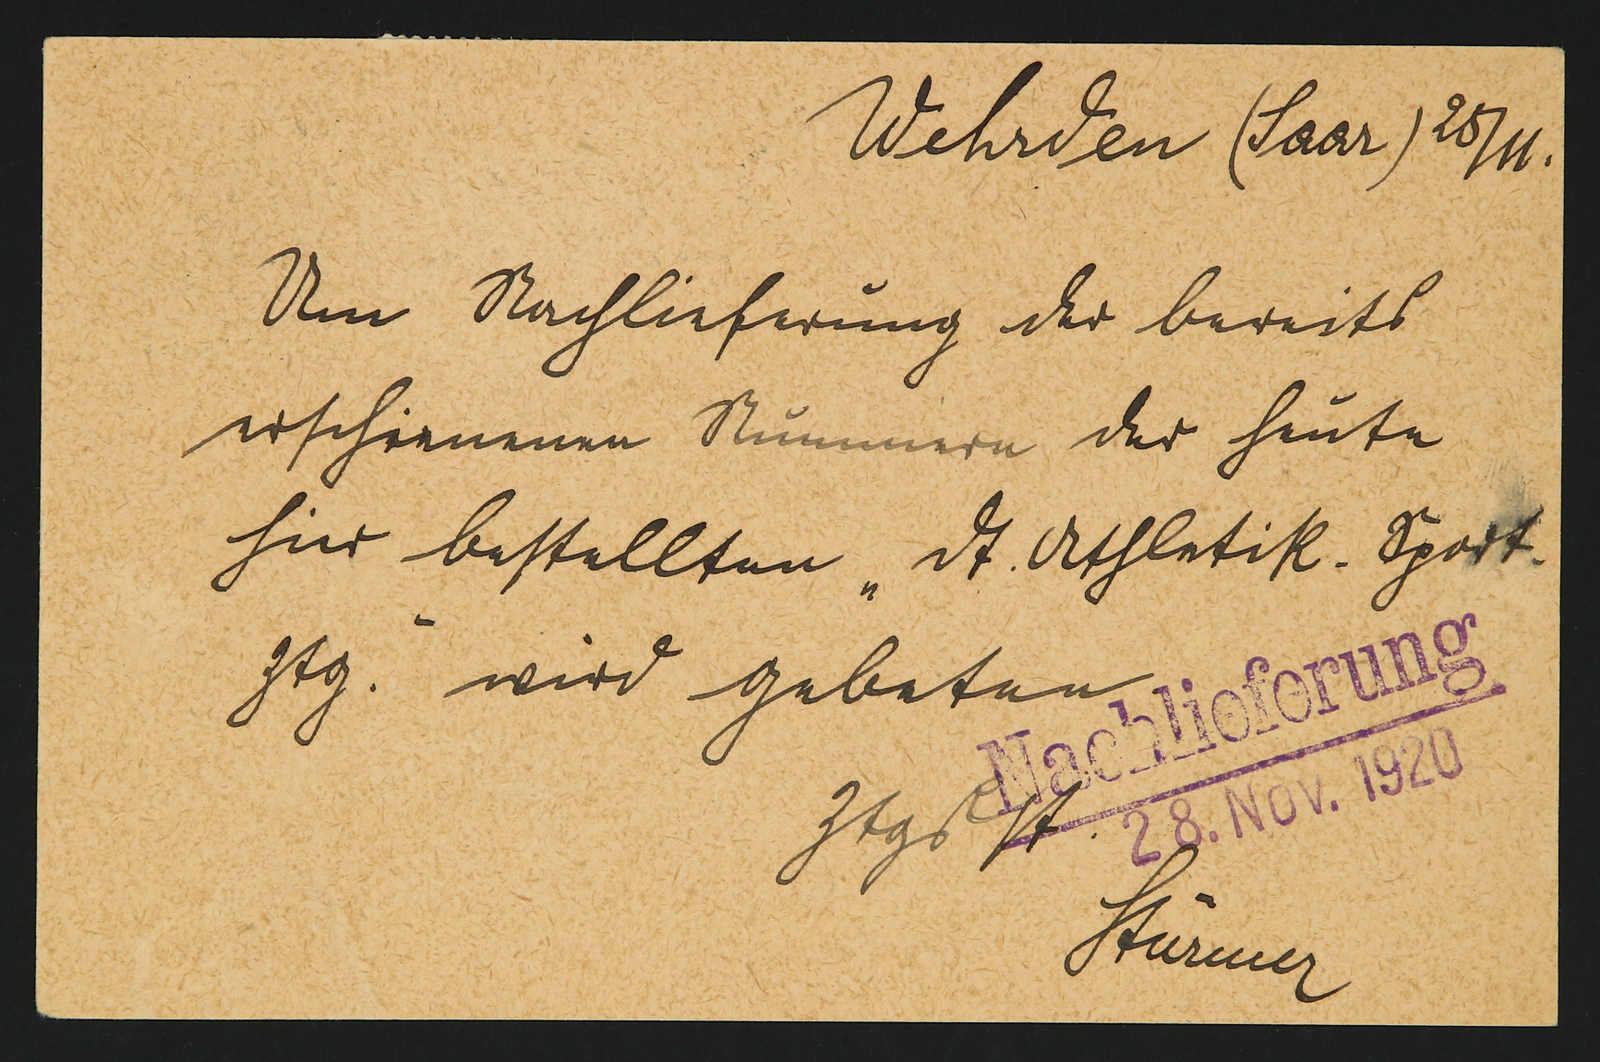 Wehrden (Saar) 25/11.
Um Nachlieferung der bereits
erschienenen Nummern der heute
hier bestellten „Dt. Athletik-Sport-
Ztg." wird gebeten
Nachlieferung
28. NOV. 1920
Ztgsst.
Stürmer